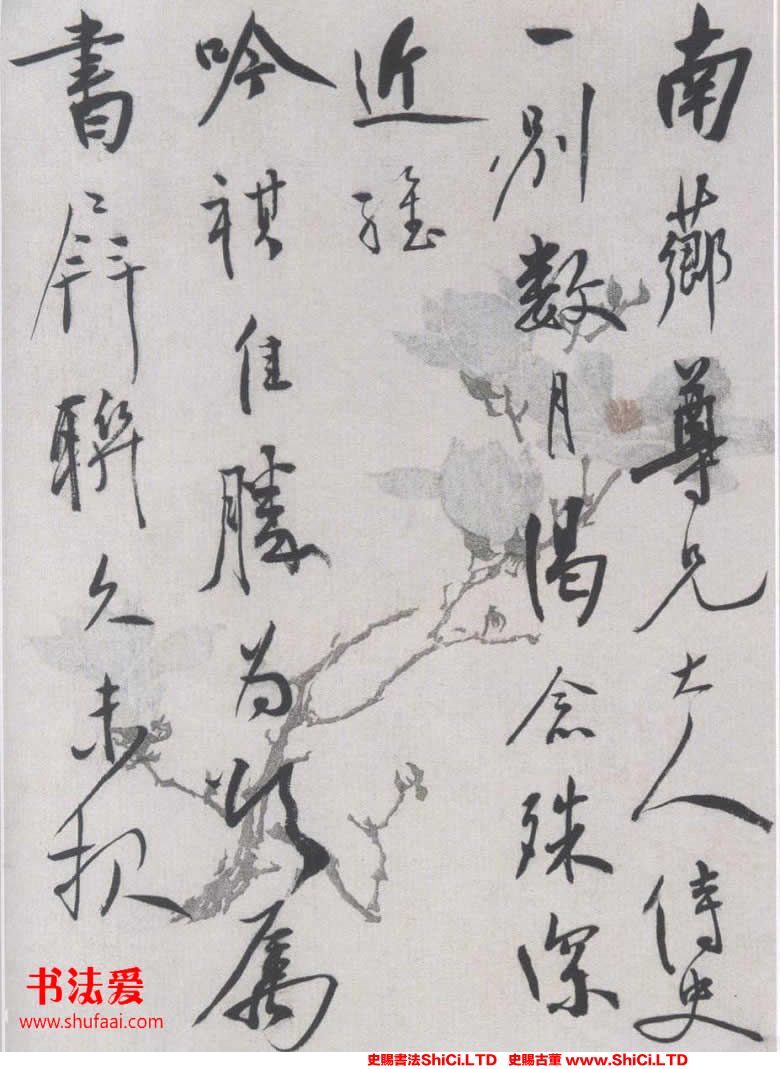 南薌尊兄大人侍史
一別數月渴念殊深
近維
吟祺佳勝為頌屬
書屏聯久未報
书法爱
www.shufaai.com
史賜書法ShiCi.LTD 史賜古董 www.ShiCi.LTD